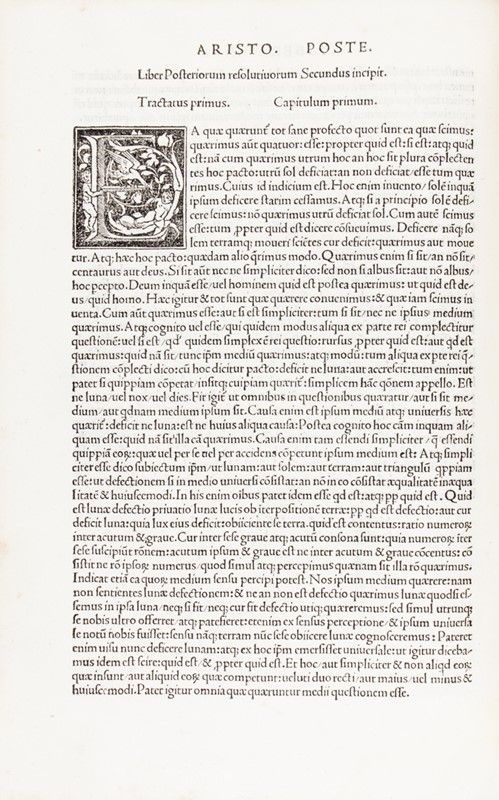 ARISTO. POSTE.
Liber Posteriorum resolutiuorum Secundus incipit.
Tractatus primus. Capitulum primum.
EA quæ quærunt̃ tot sane profecto quot sunt ea quæ scimus:
quærimus aũt quatuor: esse: propter quid est: si est: atq; quid
est: nã cum quærimus utrum hoc an hoc sit plura cõplecten
tes hoc pacto: utrũ sol deficiat: an non deficiat/esse tum quæ
rimus. Cuius id indicium est. Hoc enim inuento/solẽ inquã
ipsum deficere statim cessamus. Atq; si a principio solẽ defi-
cere scimus: nõ quærimus utrũ deficiat sol. Cum autẽ scimus
esse: tum ꝓpter quid est dicere cõsueuimus. Deficere nãq; so
lem terramq; moueri sciẽtes cur deficit: quærimus aut moue
tur. Atq; hæc hoc pacto: quædam alio q̃rimus modo. Quærimus enim si sit/an nõ sit/
centaurus aut deus. Si sit aũt nec ne simpliciter dico: sed non si albus sit: aut nõ albus/
hoc pcepto. Deum inquã esse/uel hominem quid est postea quærimus: ut quid est de-
us/quid homo. Hæc igitur & tot sunt quæ quærere conuenimus: & quæ iam scimus in
uenta. Cum aũt quærimus esse: aut si est simpliciter: tum si sit/nec ne ipsius medium
quærimus. Atq; cognito uel esse/qui quidem modus aliqua ex parte rei complectitur
questionẽ: uel si est/qđ quidem simplex ẽ rei questio: rursus ꝓpter quid est: aut qđ est
quærimus: quid nã sit/tunc ipm̃ mediũ quærimus: atq; modũ: tum aliqua ex pte rei q̃-
stionem cõplecti dico: cũ hoc dicitur pacto: deficit ne luna: aut accrescit: tum enim: ut
patet si quippiam cõpetat/insitq; cuipiam quærit̃: simplicem hãc q̃onem appello. Est
ne luna/uel nox/uel dies. Fit igit̃ ut omnibus in questionibus quæratur/aut si sit me-
dium/aut qđnam medium ipsum sit. Causa enim est ipsum mediũ atq; uniuersis hæc
quærit̃: deficit ne luna: est ne huius aliqua causa: Postea cognito hoc cãm inquam ali-
quam esse: quid nã sit illa cã quærimus. Causa enim tam essendi simpliciter/q̃ essendi
quippiã eoꝝ: quæ uel per se uel per accidens cõpetunt ipsum medium est: Atq; simpli
citer esse dico subiectum ip̃m/ut lunam: aut solem: aut terram: aut triangulũ qppiam
esse: ut defectionem si in medio uniuersi cõsistat: an nõ in eo cõsistat æqualitatẽ inæqua
litatẽ & huiuscemodi. In his enim oibus patet idem esse qđ est: atq; pp quid est. Quid
est lunæ defectio priuatio lunæ lucis ob iterpositionẽ terræ: pp qđ est defectio: aut cur
deficit luna: quia lux eius deficit: obiiciente se terra. quid est contentus: ratio numeroꝝ
inter acutum & graue. Cur inter sese graue atq; acutũ consona sunt: quia numeroꝝ iter
sese suscipiũt rõnem: acutum ipsum & graue est ne inter acutum & graue cõcentus: cõ
sistit ne rõ ipsoꝝ numerus/quod simul atq; percepimus quænam sit illa rõ quærimus.
Indicat etiã ea quoꝝ medium sensu percipi potest. Nos ipsum medium quærere: nam
non sentientes lunæ defectionem: & ne an non est defectio quærimus lunæ quodsi es-
semus in ipsa luna/neq; si sit/neq; cur sit defectio utiq; quæreremus: sed simul utrunq;
se nobis ultro offerret/atq; patefieret: etenim ex sensus perceptione/& ipsum uniuersa
le notũ nobis fuisset: sensu nãq; terram nũc sese obiicere lunæ cognosceremus: Pateret
enim uisu nunc deficere lunam: atq; ex hoc ipm̃ emersisset uniuersale: ut igitur diceba-
mus idem est scire: quid est/& ꝓpter quid est. Et hoc/aut simpliciter & non aliqđ eoꝝ
quæ insunt/aut aliquid eoꝝ quæ competunt: ueluti duo recti/aut maius/uel minus &
huiuscemodi. Patet igitur omnia quæ quæruntur medii questionem esse.